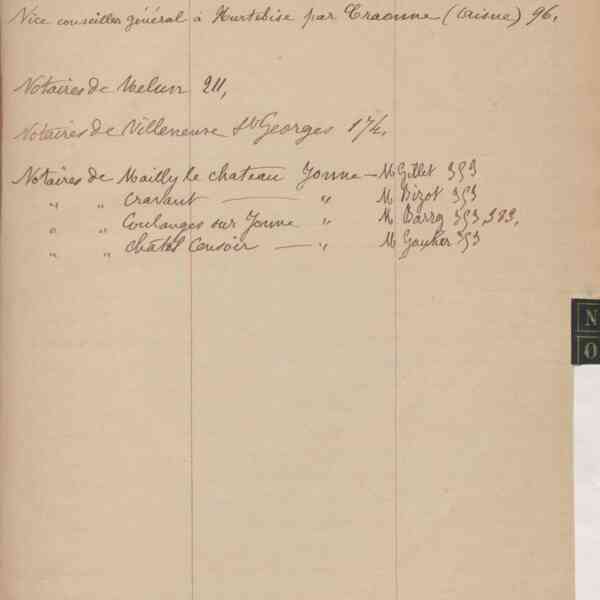 Vice conseiller général à Hurtebise par Craonne (Aisne) 96,
Notaires de Melun 211,
Notaires de Villeneuve St Georges 174,
Notaires de Mailly le chateau Yonne — M Gillet 353
" " Cravant — " M Bizot 353
" " Coulanges sur Yonne " M Barry 353, 383,
" " châtel Censoir — " M Gautier 353
N
O